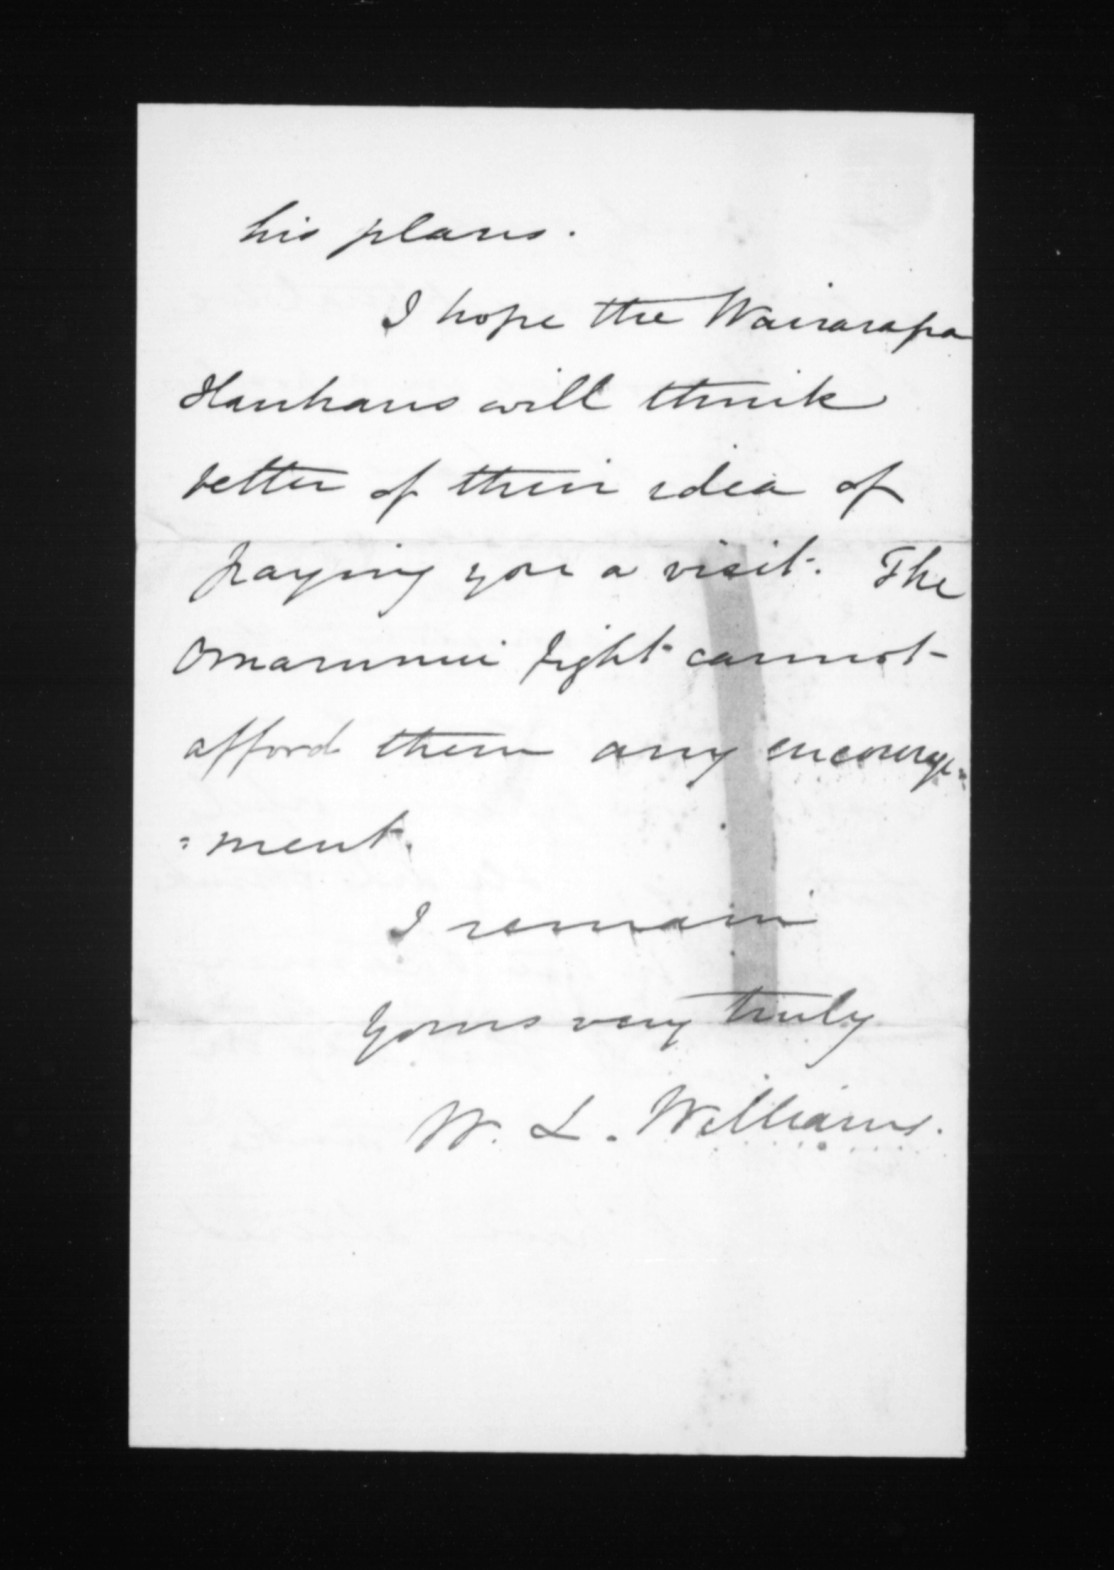 his plans.
I hope the Wairarapa
Hauhaus will think
better of their idea of
paying you a visit. The
Omarunui fight cannot
afford them any encourage=
=ment.
I remain
Yours very truly
W. L. Williams.